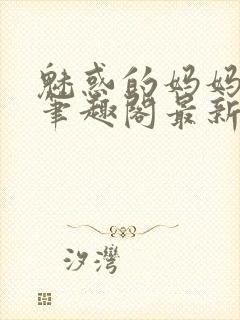 魅惑的妈妈
笔趣阁最新
汐湾